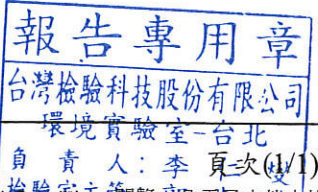 報告專用章
台灣檢驗科技股份有限公司
環境實驗室-台北
負責人：李
頁次(1/1)